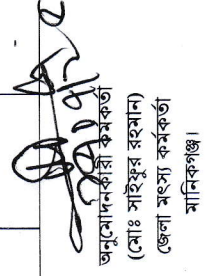 অনুমোদনকারী কর্মকর্তা
(মোঃ সাইফুর রহমান)
জেলা মৎস্য কর্মকর্তা
মানিকগঞ্জ।